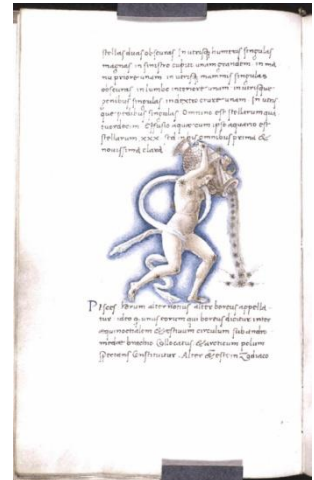 stellas duas obscuras. In utrisq; humeris singulas
magnas in sinistro cubito unam grandem in ma
nu priore unam in utrisq; mammis singulas
obscuras in lumbo interiore unam in utrisque
genibus singulas in dextro crure unam In utris
que pedibus singulas. Omnino est stellarum qua
tuordecim. Effusio aquae cum ipso aquario est
stellarum xxx. sed in his omnibus prima &
novissima clara
Pisces horum alter notius alter boreus appella
tur ideo q; unus eorum qui boreus dicitur inter
aequinoctialem & aestivum circulum sub andro
medae brachio collocatus & arcticum polum
spectans constituitur. Alter & est in Zodiaco